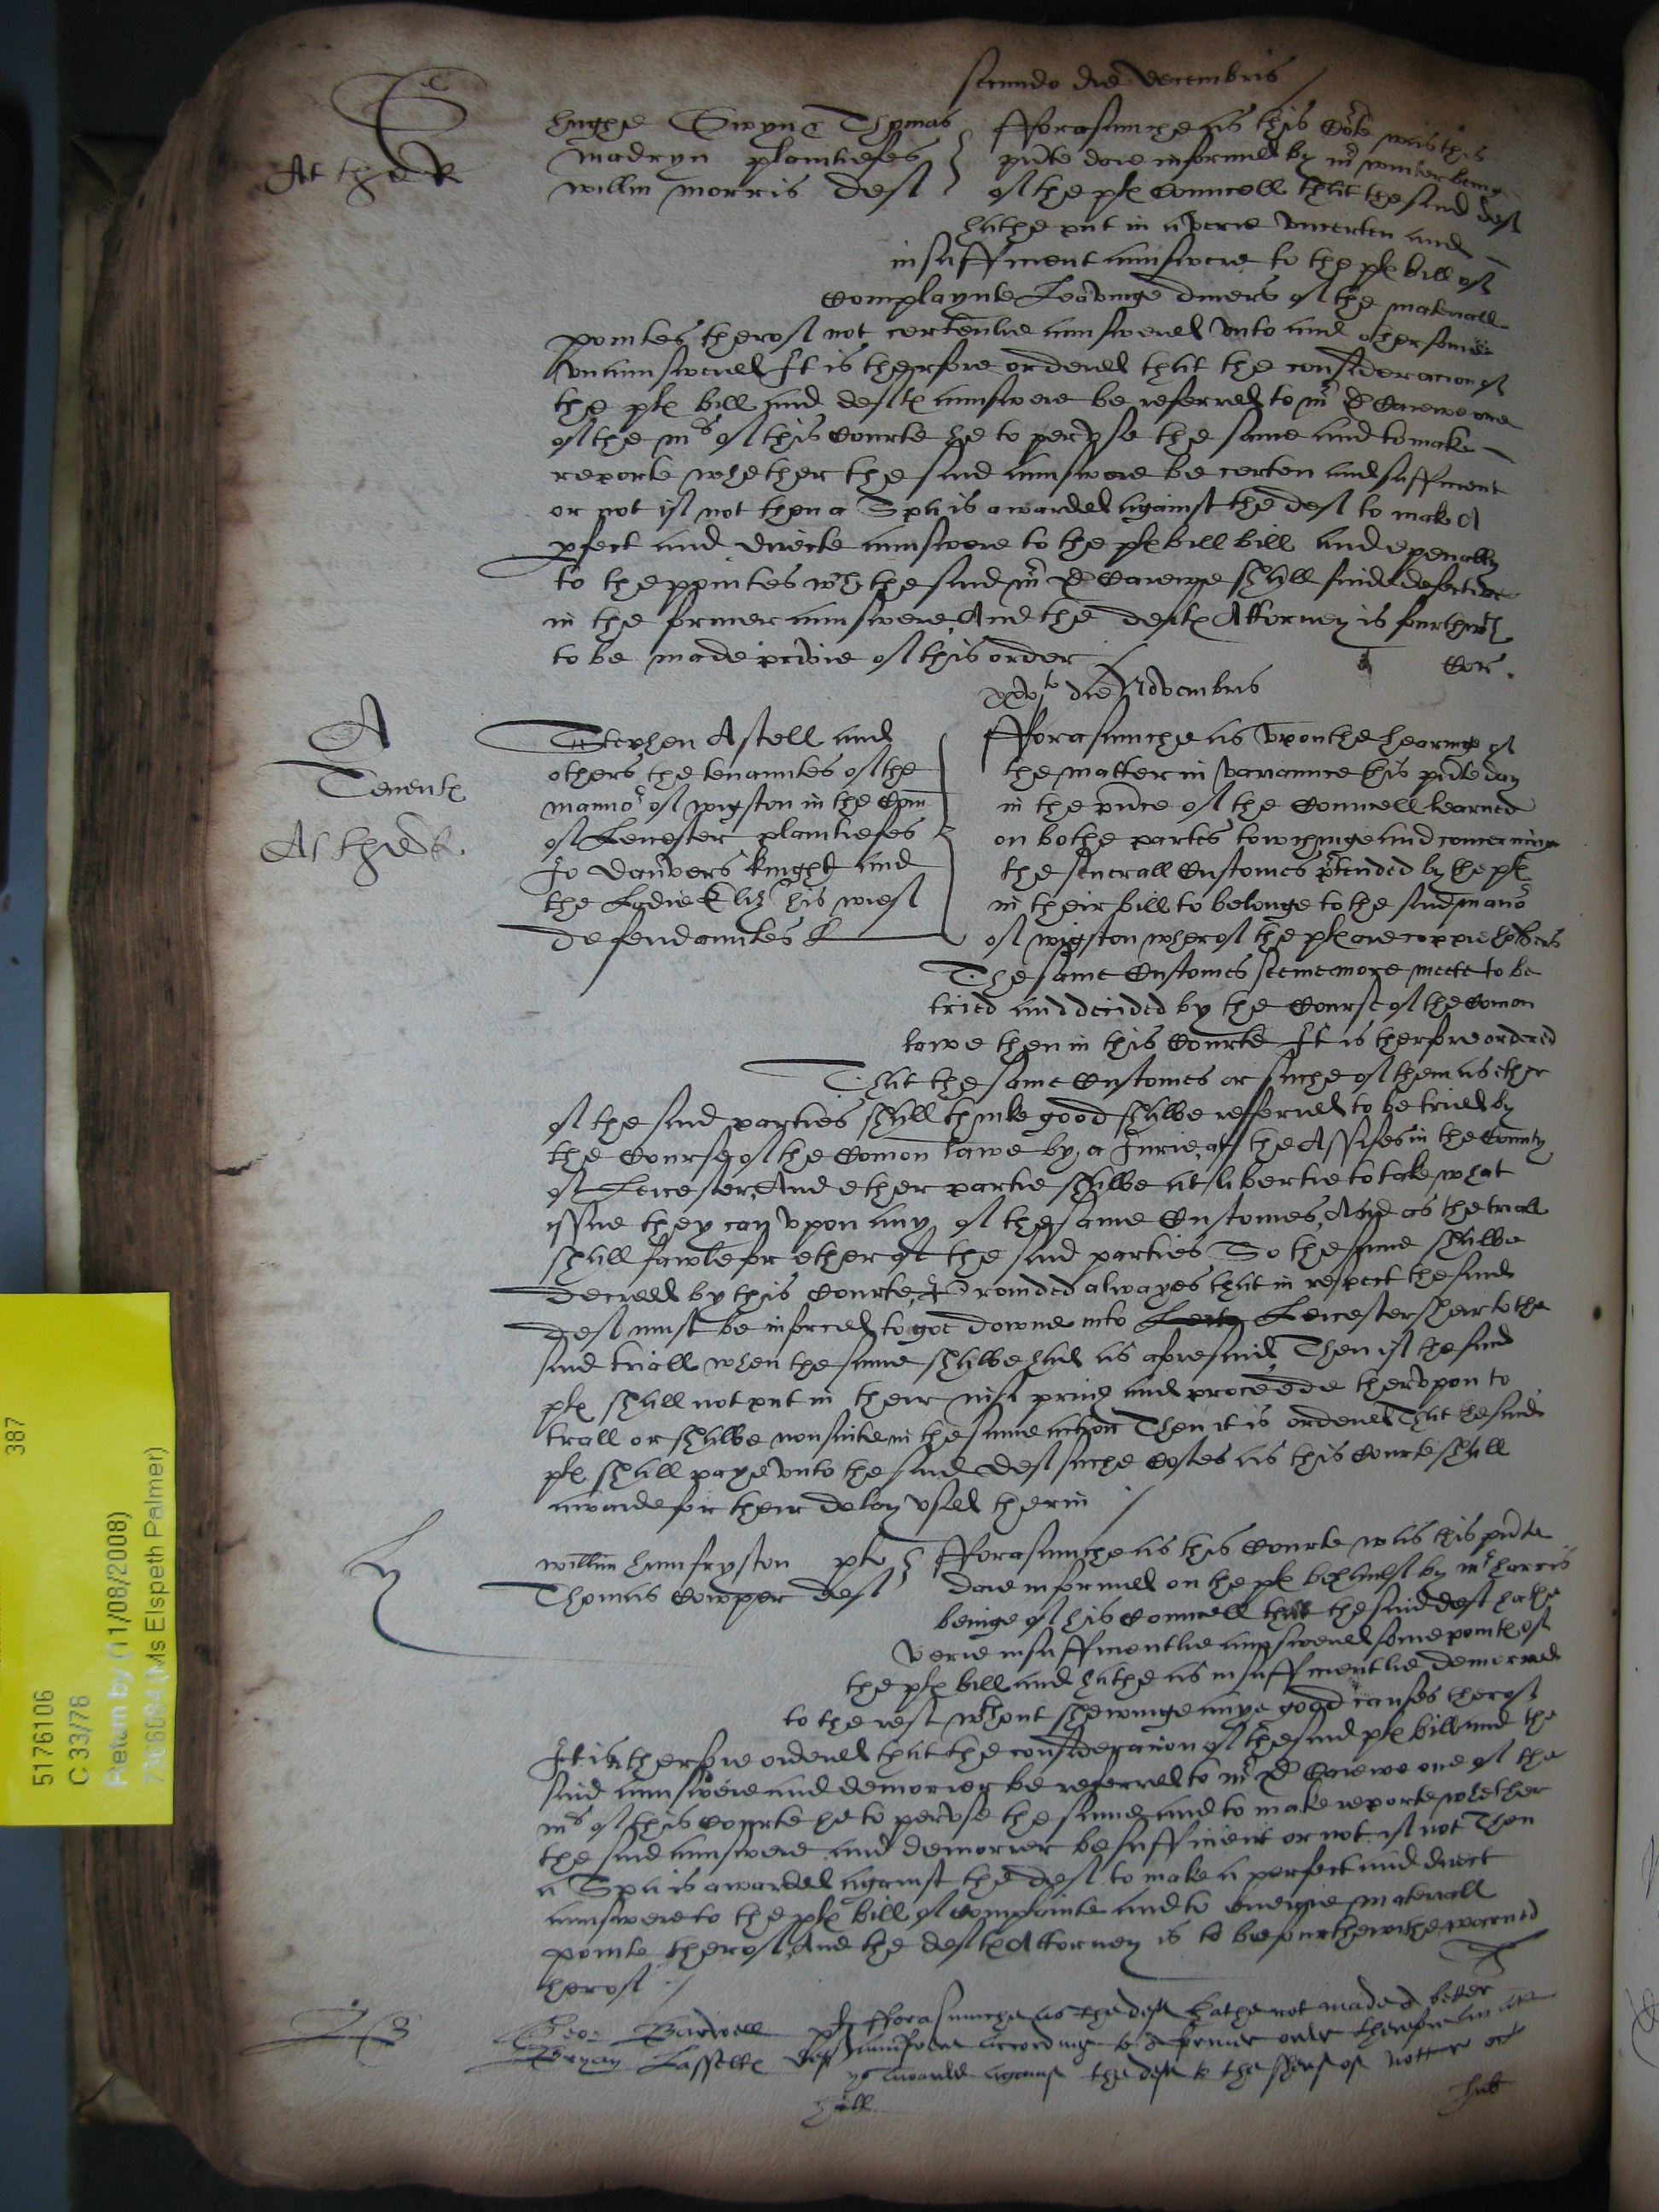 secundo die decembris
hughe Gwyn & Thomas
madryn plaintiefes
willm morris deft
fforasmuche as this Cote was this
pnte daie informed by mr winter beinge
of the pls Councell that the said deft
hathe put in a verie vncerten and
insufficient aunswere to the pls bill of
Complaynte Leavinge divers of the materiall
pointes therof not certenlie aunswered vnto and other some
vnaunswered It is therfore ordered that the consideracion of
the pls bill and defts aunswere be referred to mr D Carewe one
of the mrs of this Courte he to pervse the same and to make
reporte whether the said aunswere be certen and sufficient
or not if not then a Spa is awarded against the deft to make a
pfect and directe aunswere to the pls bill bill and especially
to the pointes wch the said mr D Carewe shall finde defective
in the former aunswere And the defts Attorney is fourthwth
to be made privie of this order
Cor.
xxvto die Novembris
A
Tenents
Stephen Astell and
others the tenauntes of the
mannor of wigston in the Coun
of Leicester plaintiefes
Jo Danvers knight and
the Ladie Eliz his wief
defendauntes
fforasmuche as vpon the hearinge of
the matter in variaunce this pnte day
in the pnce of the Councell learned
on bothe partes towchinge and concerninge
the severall Customes ptended by the pls
in their bill to belonge to the said manor
of wigston wherof the pls are coppieholders
The same Customes seeme more meete to be
tried and decided by the Course of the Comon
lawe then in this Courte It is therfore ordered
That the same Customes or suche of them as ether
of the said parties shall thinke good shalbe referred to be tried by
the Course of the Comon lawe by a Jurie at the Assises in the County
of Leicester, And ether partie shalbe at libertie to take what
issue they can vpon any of the same Customes, And as the triall
shall fawle for ether of the said parties So the same shalbe
decreed by this Courte, Provided alwayes that in respect the said
deft must be inforced to goe downe into Leicestershier to the
said triall when the same shalbe had as aforesaid, Then if the said
pls shall not put in their nisi prius and proceede thervpon to
triall or shalbe nonsuite in the same action Then it is ordered That the said
pls shall paye vnto the said deft suche Costes as this Courte shall
awarde for their delay vsed therin
willm humfryston pl
Thomas Cowper deft
fforasmuche as this Courte was this pnte
daie informed on the pls behaulf by mr harris
beinge of his Councell that the said deft hathe
verie insufficientlie aunswered some points of
the pls bill and hathe as insufficientlie demorred
to the rest wthout shewinge anye good causes therof
It is therfore ordered that the consideracion of the said pls bill and the
said aunswere and demorrer be referred to mr D Carewe one of the
mrs of this Courte he to pervse the same and to make reporte whether
the said aunswere and demorrer be sufficient or not if not Then
a Spa is awarded against the deft to make a perfect and direct
aunswere to the pls bill of complainte and to everie materiall
pointe therof, And the defts Attorney is to be fourthewithe warned
therof
Geo: Barwell pl
Bryan Lassells deft
fforasmuche as the deft hathe not made a better
aunswere according to a former order therfore an att
ys awarded against the deft to the shreif of
5176106 387
C 33/76
Return by (11/08/2008)
(Ms Elspeth Palmer)